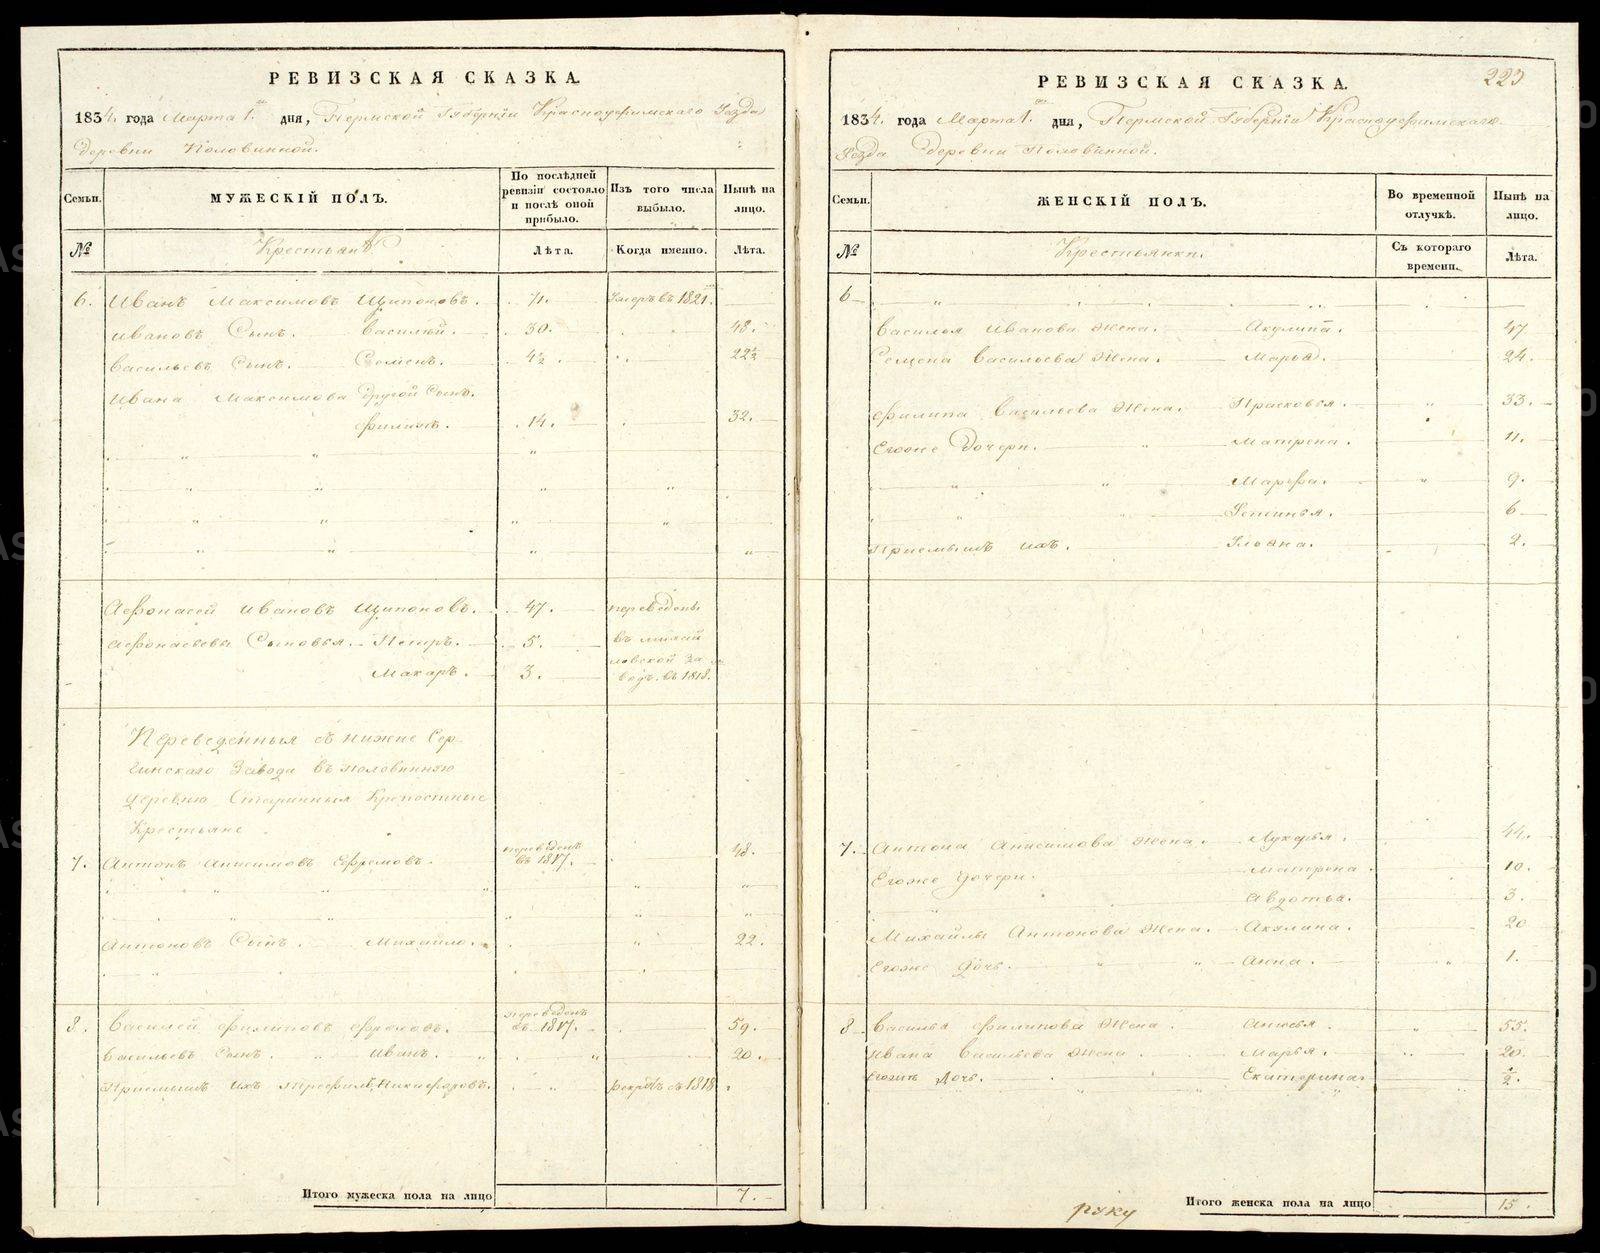 РЕВИЗСКАЯ СКАЗКА.
1834. года Марта 1. дня, Пермской Губернiи Красноуфимскаго Уезда
деревни Половинной.
Семьи.
МУЖЕСКIЙ ПОЛЪ.
По послѣдней ревизiи состояло и послѣ оной прибыло.
Изъ того числа выбыло.
Нынѣ на лицо.
№
Крестьянѣ
Лѣта.
Когда именно.
Лѣта.
6. Иванъ Максимовъ Щипоновъ. 71. Умеръ въ 1821.
Ивановъ Сынъ. Василiй. 30. 48.
Васильевъ Сынъ. Семенъ. 4½. 22½
Ивана Максимова другой Сынъ.
Филипъ. 14. 32.
Афонасей Ивановъ Щипоновъ. 47. переведены
Афонасьевы Сыновья. Петръ. 5. въ михай
Макаръ. 3. ловской за
водъ. въ 1818.
Переведенныя съ Нижне Сер
гинскаго Завода въ половинную
деревню Старинныя Крепостные
Крестьяне
7. Антонъ Анисимовъ Ефремовъ. переведенъ въ 1817. 48.
Антоновъ Сынъ. Михайло. 22.
8. Василей Филиповъ Фроловъ. переведенъ въ 1817. 59.
Васильевъ Сынъ. Иванъ. 20.
Прiемышъ ихъ Трефилъ Никифоровъ. рекрутъ съ 1818
Итого мужеска пола на лицо 7.
223
РЕВИЗСКАЯ СКАЗКА.
1834. года Марта 1. дня, Пермской Губернiи Красноуфимскаго
Уезда деревни Половинной.
Семьи.
ЖЕНСКIЙ ПОЛЪ.
Во временной отлучкѣ.
Нынѣ на лицо.
№
Крестьянки.
Съ котораго времени.
Лѣта.
6
Василья Иванова Жена. Акулина. 47
Семена Васильева Жена. Марья. 24.
Филипа Васильева Жена. Прасковья. 33.
Егоже Дочери. Матрена. 11.
Марфа. 9.
Устинья. 6
Прiемышъ ихъ. Ульяна. 2.
7. Антона Анисимова Жена. Лукерья. 44.
Егоже Дочери. Матрена. 10.
Авдотья. 3.
Михайлы Антонова Жена. Акулина. 20
Егоже Дочь. Анна. 1.
8 Василья Филипова Жена. Анисья. 55.
Ивана Васильева Жена. Марья. 20.
Егоже Дочь. Екатерина. ½.
руку
Итого женска пола на лицо 15.